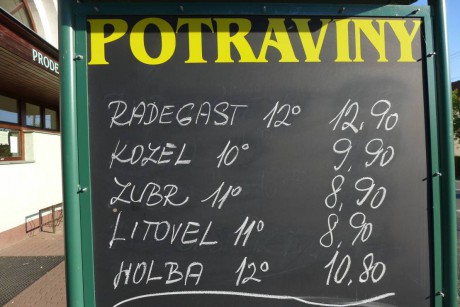 POTRAVINY
PRODE
RADEGAST 12° 12,90
KOZEL 10° 9,90
ZUBR 11° 8,90
LITOVEL 11° 8,90
HOLBA 12° 10,80